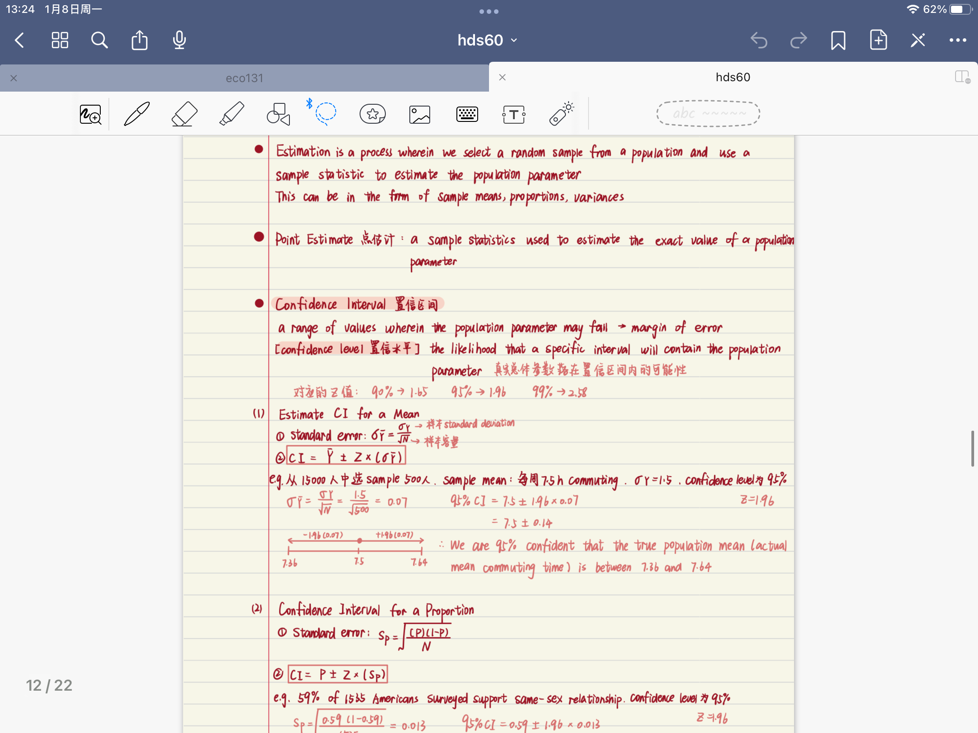 13:24 1月8日周一
62%
hds60
eco131
hds60
abc
Estimation is a process wherein we select a random sample from a population and use a
sample statistic to estimate the population parameter
This can be in the form of sample means, proportions, variances
Point Estimate 点估计: a sample statistics used to estimate the exact value of a population
parameter
Confidence Interval 置信区间
a range of values wherein the population parameter may fall → margin of error
[confidence level 置信水平] the likelihood that a specific interval will contain the population
parameter 真实总体参数落在置信区间内的可能性
对应的Z值: 90% → 1.65 95% → 1.96 99% → 2.58
(1) Estimate CI for a Mean
① Standard error: σȲ = σY/√N → 样本 standard deviation
→ 样本容量
② CI = Ȳ ± Z × (σȲ)
eg. 从 15000 人中选 sample 500人. sample mean: 每周 7.5 h commuting. σY = 1.5. confidence level为 95%
σȲ = σY/√N = 1.5/√500 = 0.07 95% CI = 7.5 ± 1.96 × 0.07 Z=1.96
= 7.5 ± 0.14
-1.96(0.07) +1.96(0.07)
∴ We are 95% confident that the true population mean (actual
7.36 7.5 7.64
mean commuting time) is between 7.36 and 7.64
(2) Confidence Interval for a Proportion
① Standard error: Sp = √(P)(1-P)/N
② CI = P ± Z × (Sp)
e.g. 59% of 1535 Americans surveyed support same-sex relationship. confidence level为 95%
Sp = √0.59 (1-0.59) = 0.013 95% CI = 0.59 ± 1.96 × 0.013 Z=1.96
12 / 22